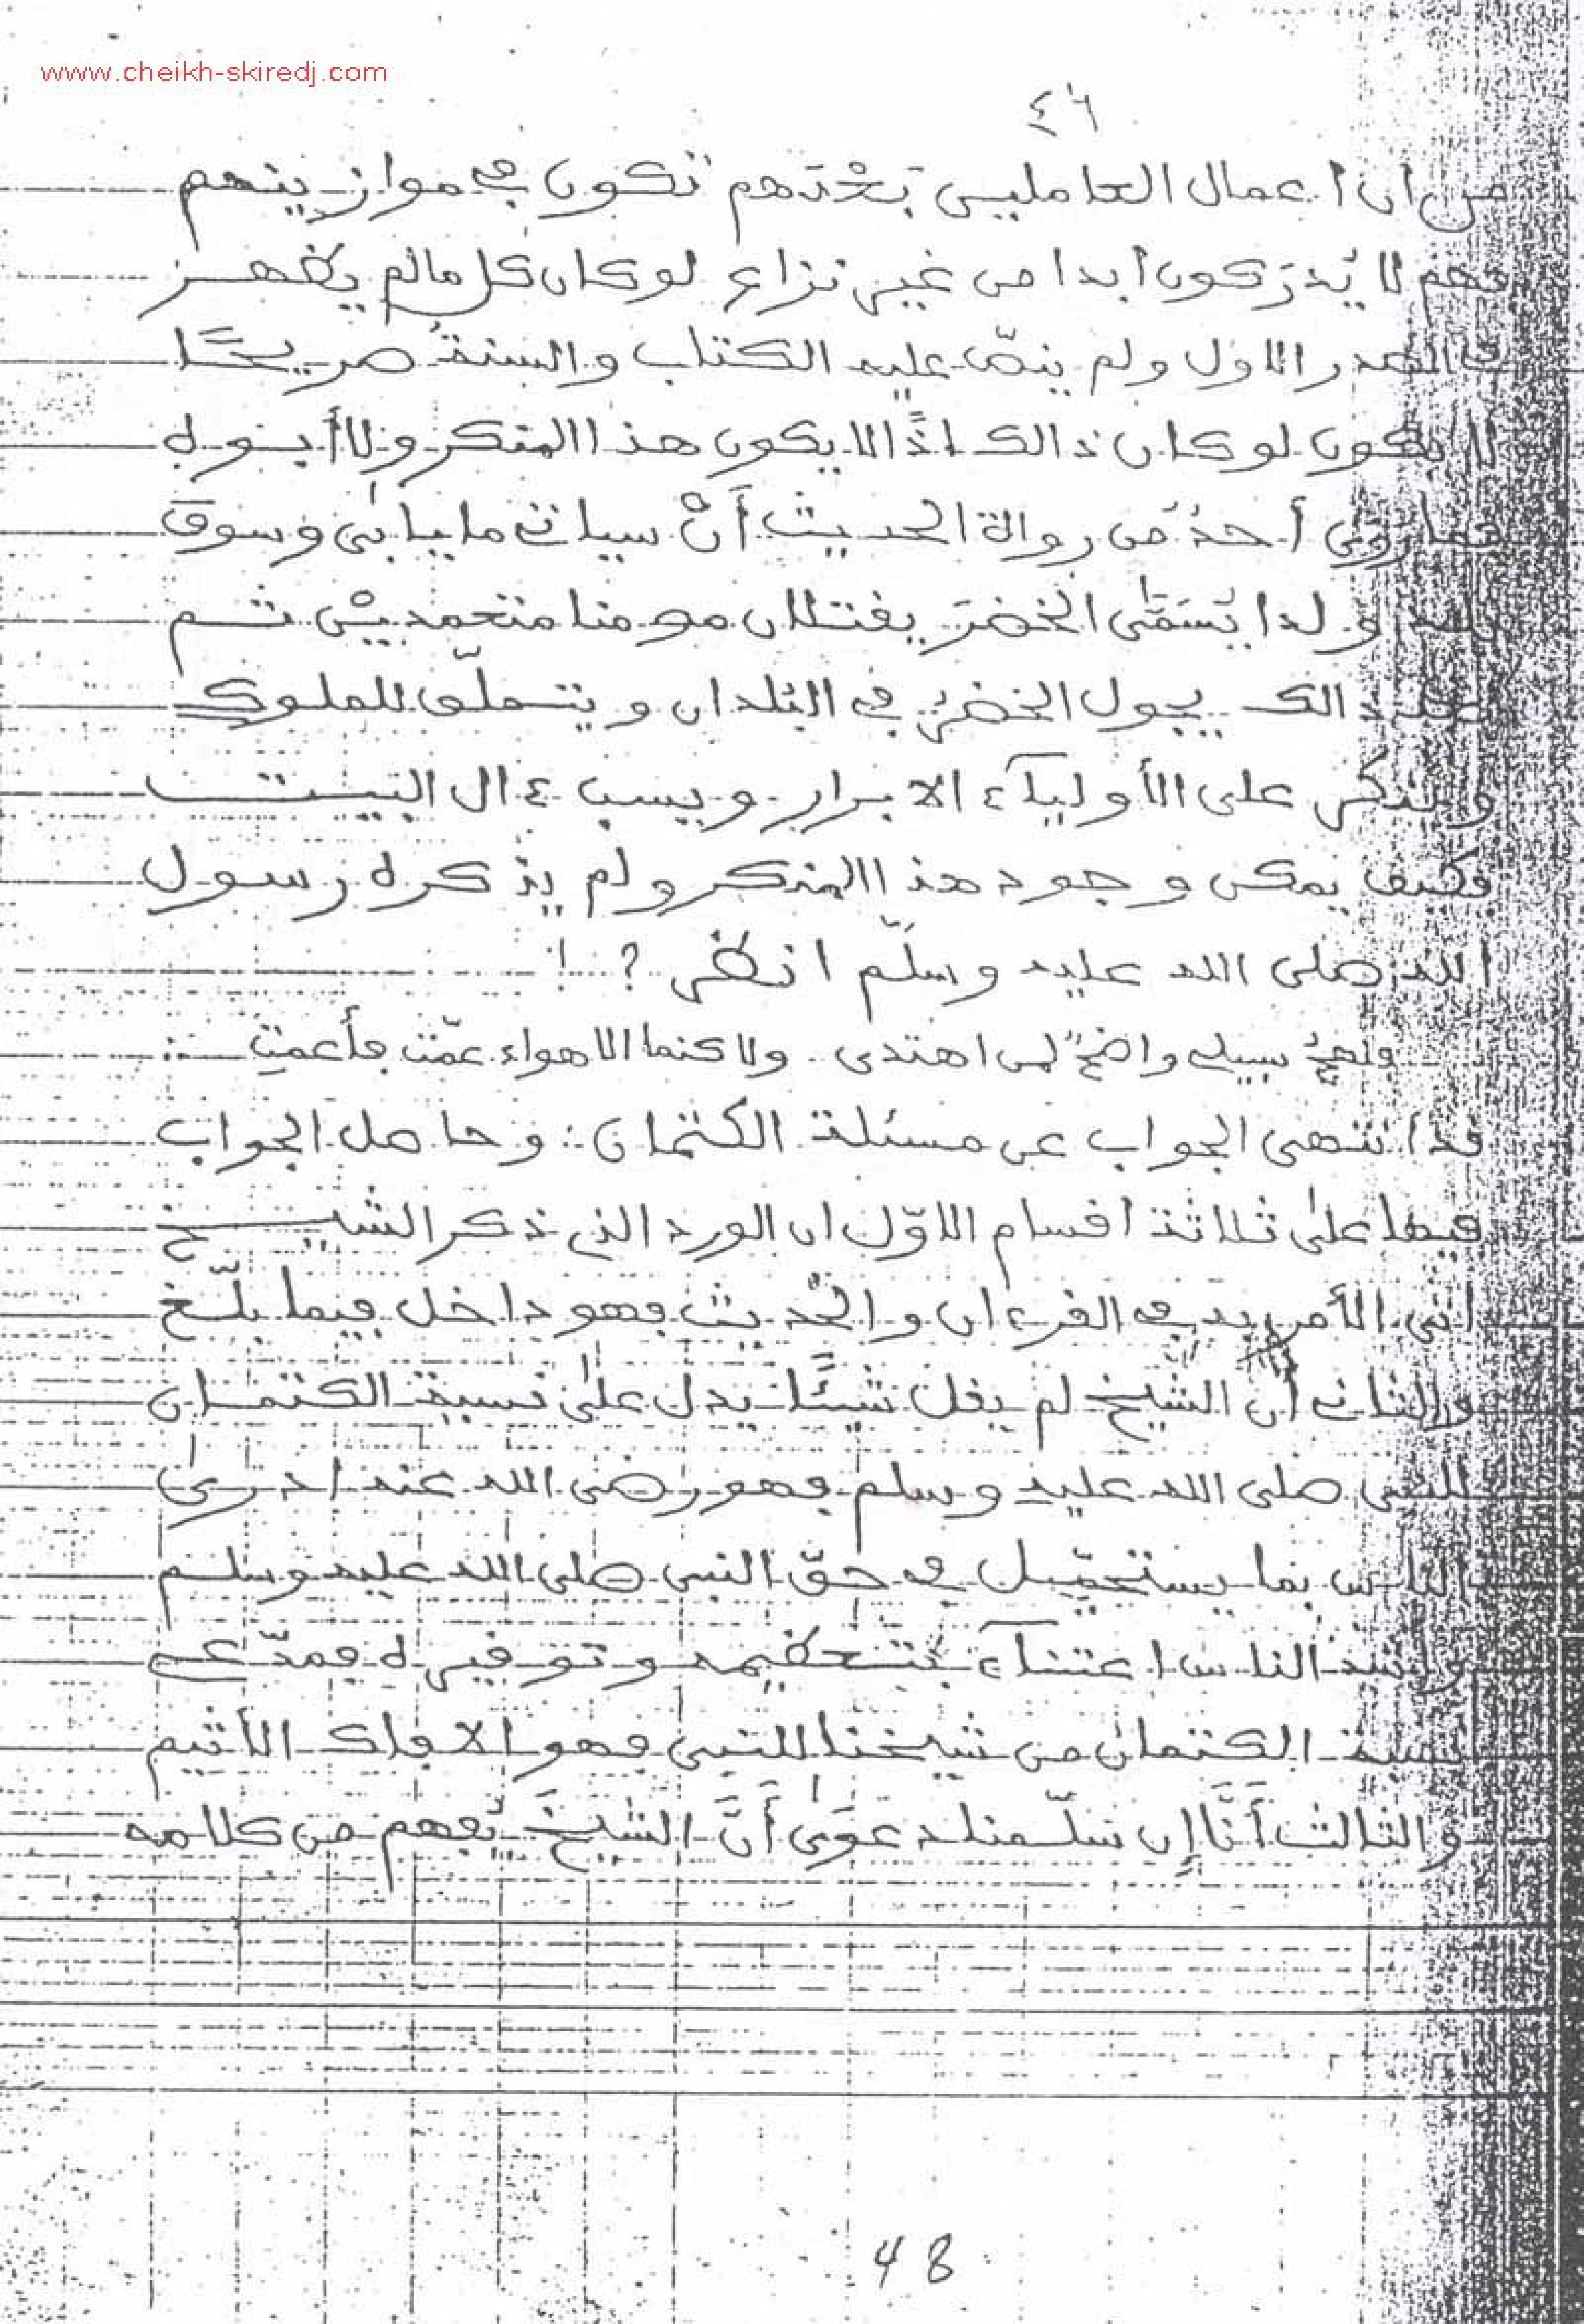 www.cheikh-skiredj.com
٤٦
من ان اعمال العاملين بَعْدَهم تكون في موازينهم
فهم لا يُدرَكون أبدا من غير نزاع لو كان كل مالم يظهر
في الصدر الاول ولم ينصّ عليه الكتاب والسنةُ صريحًا
لا يكون لو كان ذالك اذًا لا يكون هذا المنكر ولا أبوه
فما روى أحدٌ من رواة الحديث أنْ سياتي مايابى وسوف
يلد ولدا يُسَمَّى الخضرَ يقتلان مومنا متعمديْن ثم
بعد ذالك يجول الخضرُ في البلدان ويتملّق للملوك
وينكر على الأولياء الابرار ويسب ءال البيت
فكيف يمكن وجود هذا المنكر ولم يذكره رسول
الله صلى الله عليه وسلّم انظر ? !
ونهجُ سبيلي واضحٌ لمن اهتدى ولاكنما الاهواء عمّت فأعمت
قد انتهى الجواب عن مسئلة الكتمان : وحاصل الجواب
فيها على ثلاثة اقسام الاوّل ان الورد الذي ذكر الشيخ
اتى الأمر به في القرءان والحديث فهو داخل فيما بلّغ
والثاني أن الشيخ لم يقل شيئًا يدل على نسبة الكتمان
للنبي صلى الله عليه وسلم فهو رضي الله عنه ادرى
الناس بما يستحيل في حقّ النبي صلى الله عليه وسلم
واشد الناس اعتناء بتعظيمه وتوقيره فمدّعي
نسبة الكتمان من شيخنا للنبي فهو الافاك الأثيم
والثالث أنَّا إن سلّمنا دعوَى أنَّ الشيخَ يُفهم من كلامه
48